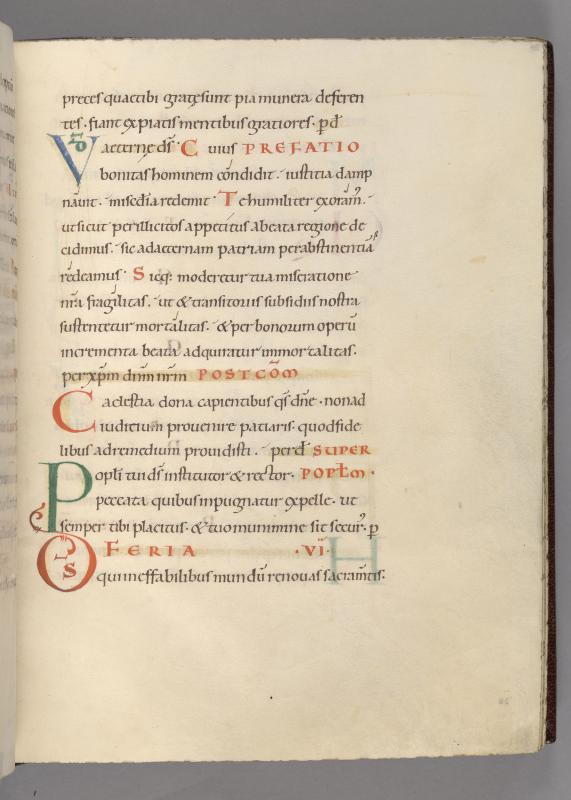 preces quaetibi gratę sunt pia munera deferen
tes. fiant expiatis mentibus gratiores. p̄ d̄
VD aeternę dš. Cuius PREFATIO
bonitas hominem cōndidit. iustitia damp
nauit. misedia redemit. Te humiliter exoram̄.
ut sicut per illicitos appetitus abeata regione de
cidimus. sic adaeternam patriam per abstinentiā
redeamus. Sicq; moderetur tua miseratione
nr̄a fragilitas. ut & transitoriis subsidiis nostra
sustentetur mortalitas. & per bonorum operū
incrementa beata adquiratur inmortalitas.
per xp̄m dn̄m nr̄m POSTCOM̄
Caelestia dona capientibus qs̄ dn̄e. non ad
iudicium prouenire patiaris. quod fide
libus ad remedium prouidisti. per d̄ SUPER
Popli tui dš institutor & rector. POPLM.
peccata quibus inpugnatur expelle. ut
semper tibi placitus. & tuo munimine sit secur'. p̄
FERIA .VI.
Ds qui ineffabilibus mundū renouas sacram̄tis.